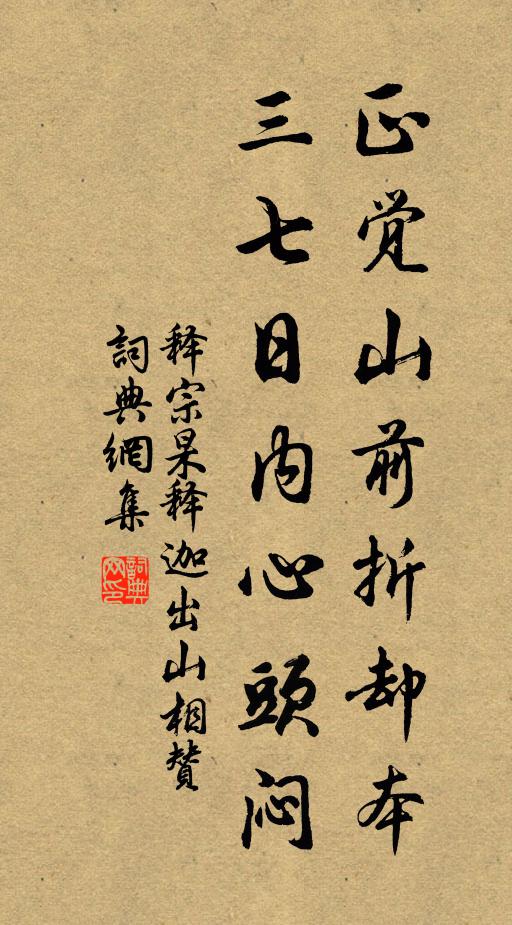 正觉山前折却本
三七日内心頭闷
释宗杲释迦出山相赞
詞典網集
詞典網印